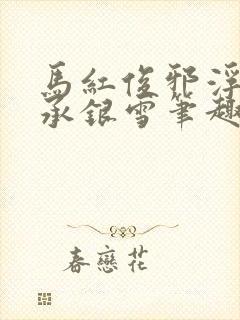 馬紅俊邪浮
承銀雪筆趣
春戀花